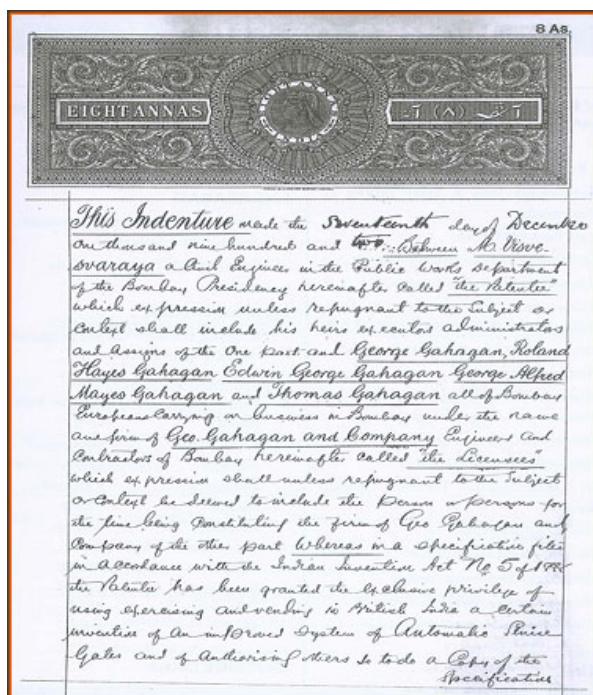 8 As.
EIGHT ANNAS
This Indenture made the Seventeenth day of December
one thousand nine hundred and two Between M. Visve-
svaraya a Civil Engineer in the Public Works Department
of the Bombay Presidency hereinafter called "the Patentee"
which expression unless repugnant to the Subject or
Context shall include his heirs executors administrators
and assigns of the One part and George Gahagan, Roland
Hayes Gahagan Edwin George Gahagan George Alfred
Mayes Gahagan and Thomas Gahagan all of Bombay
Europeans carrying on business in Bombay under the name
and firm of Geo. Gahagan and Company Engineers and
Contractors of Bombay hereinafter called "the Licensees"
which expression shall unless repugnant to the Subject
or Context be deemed to include the person or persons for
the time being constituting the firm of Geo Gahagan and
Company of the other part Whereas in a specification filed
in accordance with the Indian Invention Act No 5 of
the Patentee has been granted the exclusive privilege of
using exercising and vending in British India a certain
invention of An improved System of Automatic Sluice
Gates and of Authorising others so to do a Copy of the
specification